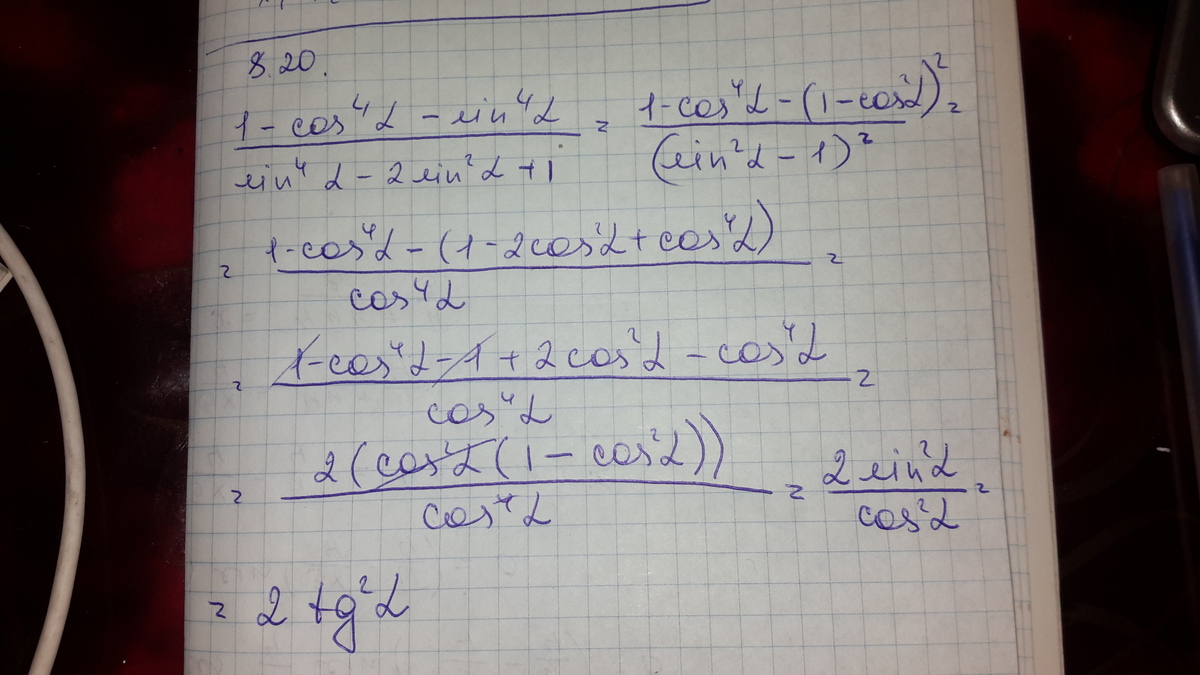 8.20.
(1 - cos⁴α - sin⁴α) / (sin⁴α - 2sin²α + 1) = (1 - cos⁴α - (1 - cos²α)²) / (sin²α - 1)² =
= (1 - cos⁴α - (1 - 2cos²α + cos⁴α)) / cos⁴α =
= (1 - cos⁴α - 1 + 2cos²α - cos⁴α) / cos⁴α =
= 2(cos²α(1 - cos²α)) / cos⁴α = 2sin²α / cos²α =
= 2 tg²α